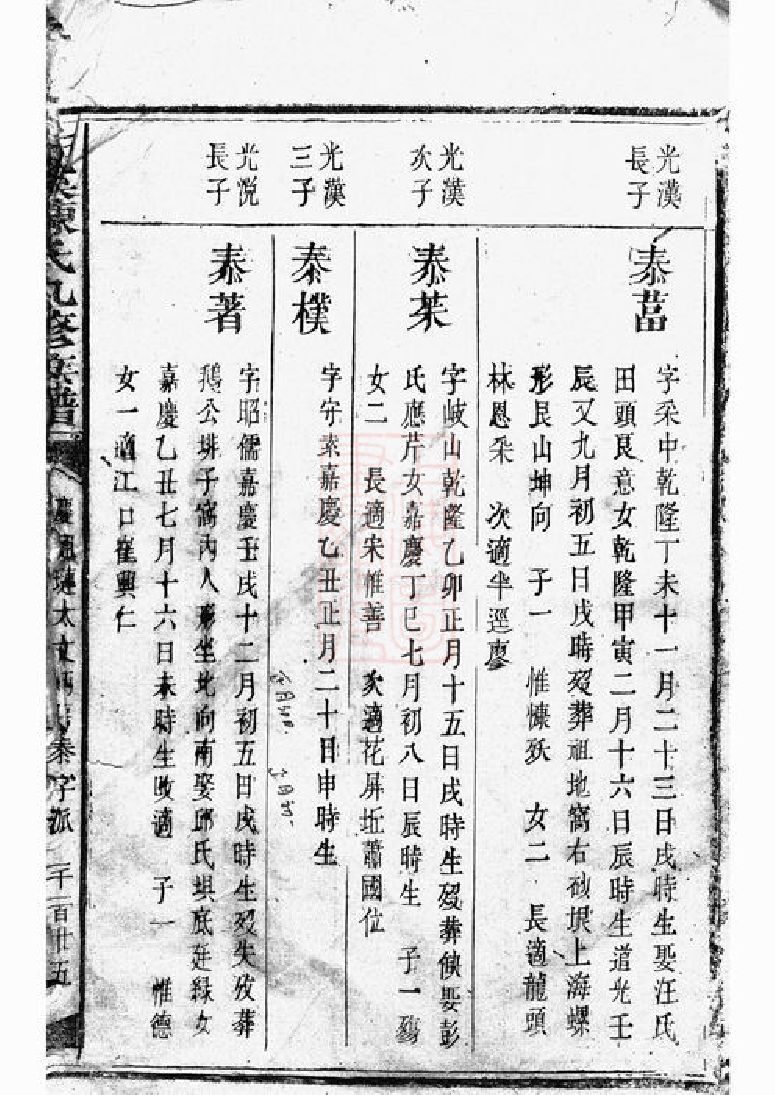 光漢
長子
泰菑
字采中乾隆丁未十一月二十三日戌時生娶汪氏
田頭艮意女乾隆甲寅二月十六日辰時生道光壬
辰又九月初五日戌時歿葬祖地窩右砂垻上海螺
形艮山坤向 子一 惟慷殀 女二 長適龍頭
林恩采 次適半逕廖
光漢
次子
泰茱
字岐山乾隆乙卯正月十五日戌時生歿葬俟娶彭
氏應芹女嘉慶丁巳七月初八日辰時生 子一殤
女二 長適宋惟善 次適花屏坵蕭國位
光漢
三子
泰樸
字守素嘉慶乙丑正月二十日申時生
光悅
長子
泰著
字昭儒嘉慶壬戌十二月初五日戌時生歿失攷葬
鵝公排子窩內人形坐北向南娶邱氏垻底廷綠女
嘉慶乙丑七月十六日未時生改適 子一 惟德
女一適江口崔興仁
陳氏九修族譜
泰字派
一千一百廿五